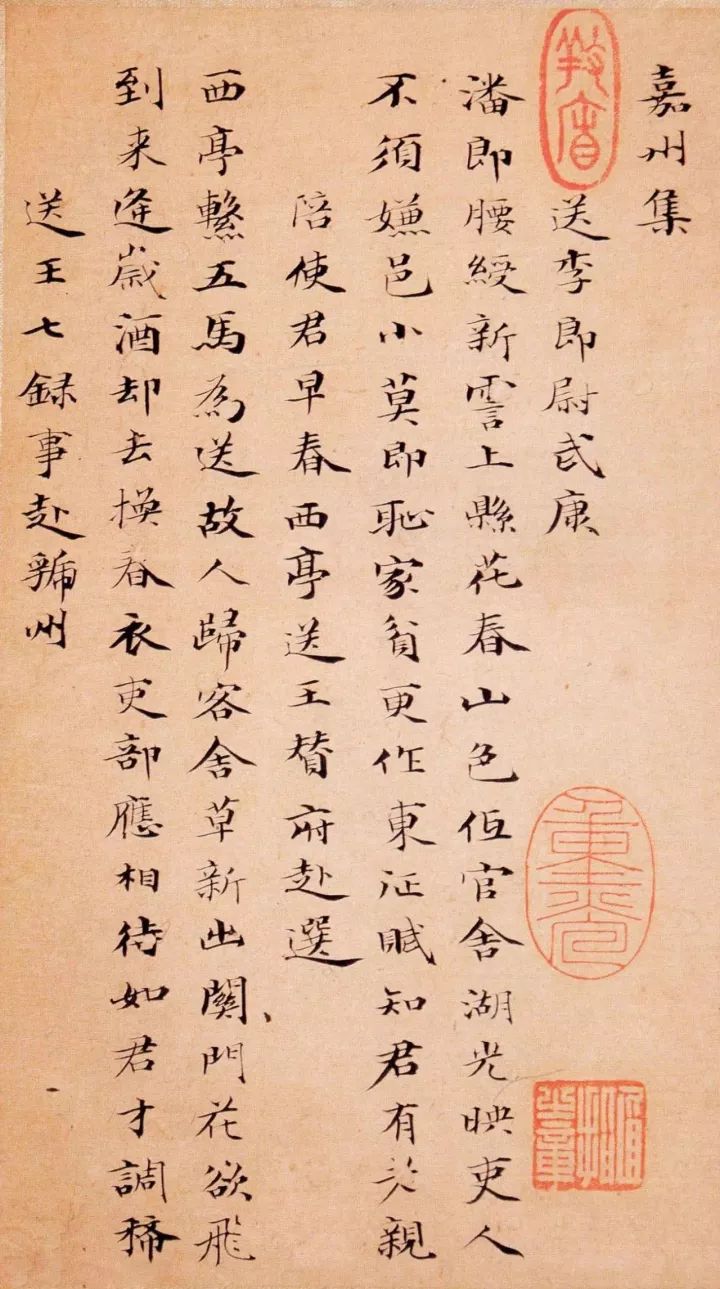 嘉州集
送李郎尉武康
潘郎腰綬新霅上縣花春山色低官舍湖光映吏人
不須嫌邑小莫即恥家貧更作東征賦知君有老親
陪使君早春西亭送王贊府赴選
西亭繫五馬為送故人歸客舍草新出關門花欲飛
到来逢歳酒却去換春衣吏部應相待如君才調稀
送王七録事赴虢州